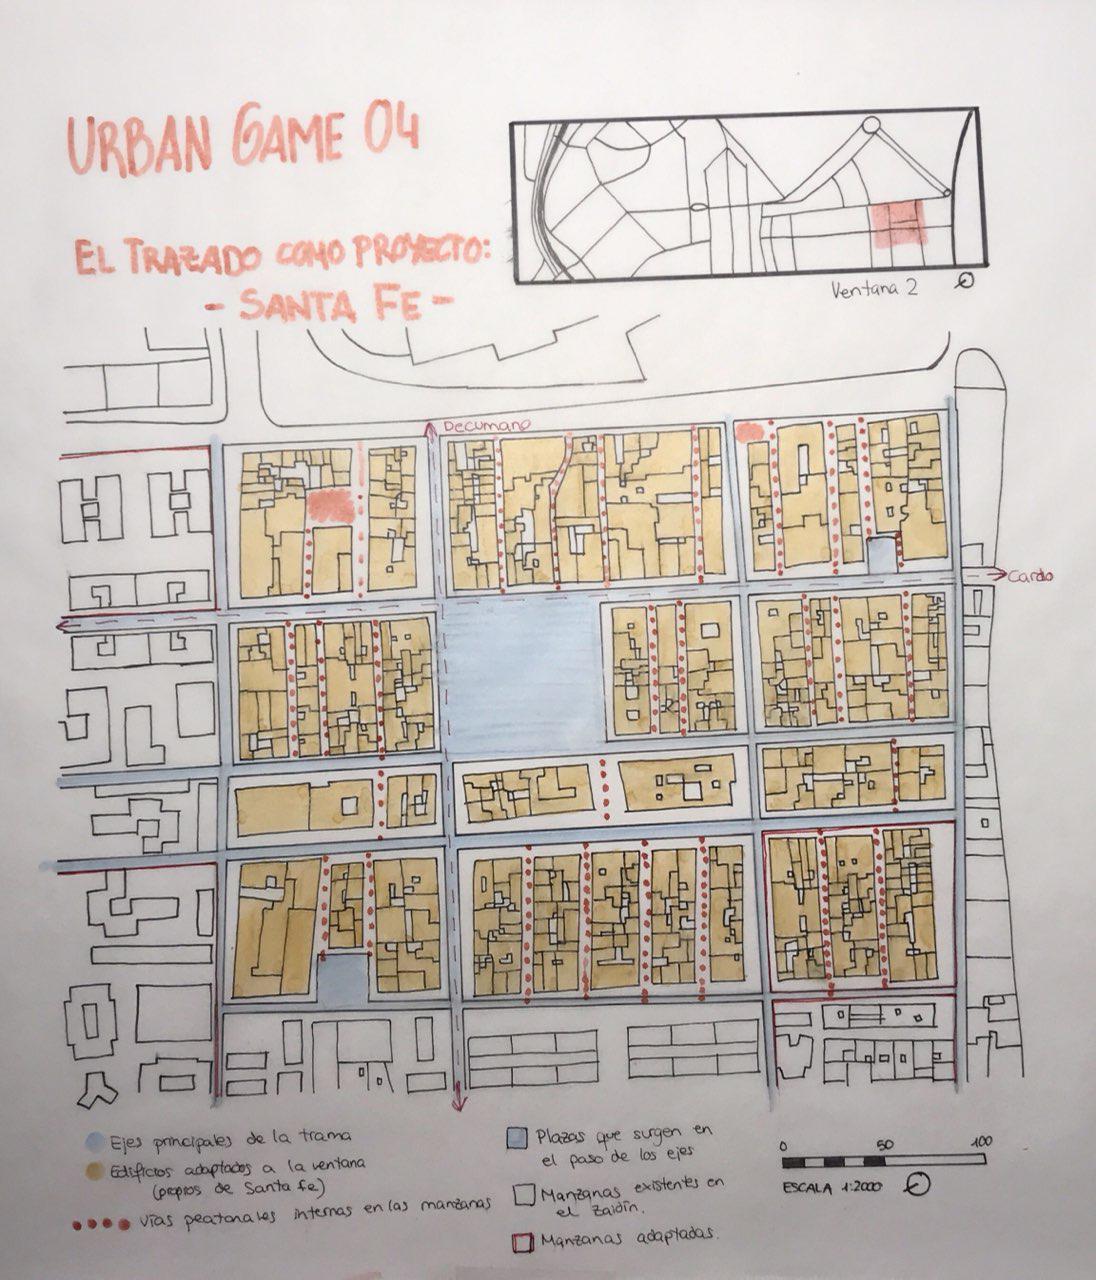 URBAN GAME 04
EL TRAZADO COMO PROYECTO:
- SANTA FE -
Ventana 2
Decumano
Cardo
Ejes principales de la trama
Edificios adaptados a la ventana
(propios de Santa fe)
vías peatonales internas en las manzanas
Plazas que surgen en
el paso de los ejes
Manzanas existentes en
el Zaidín.
Manzanas adaptadas.
0 50 100
ESCALA 1:2000